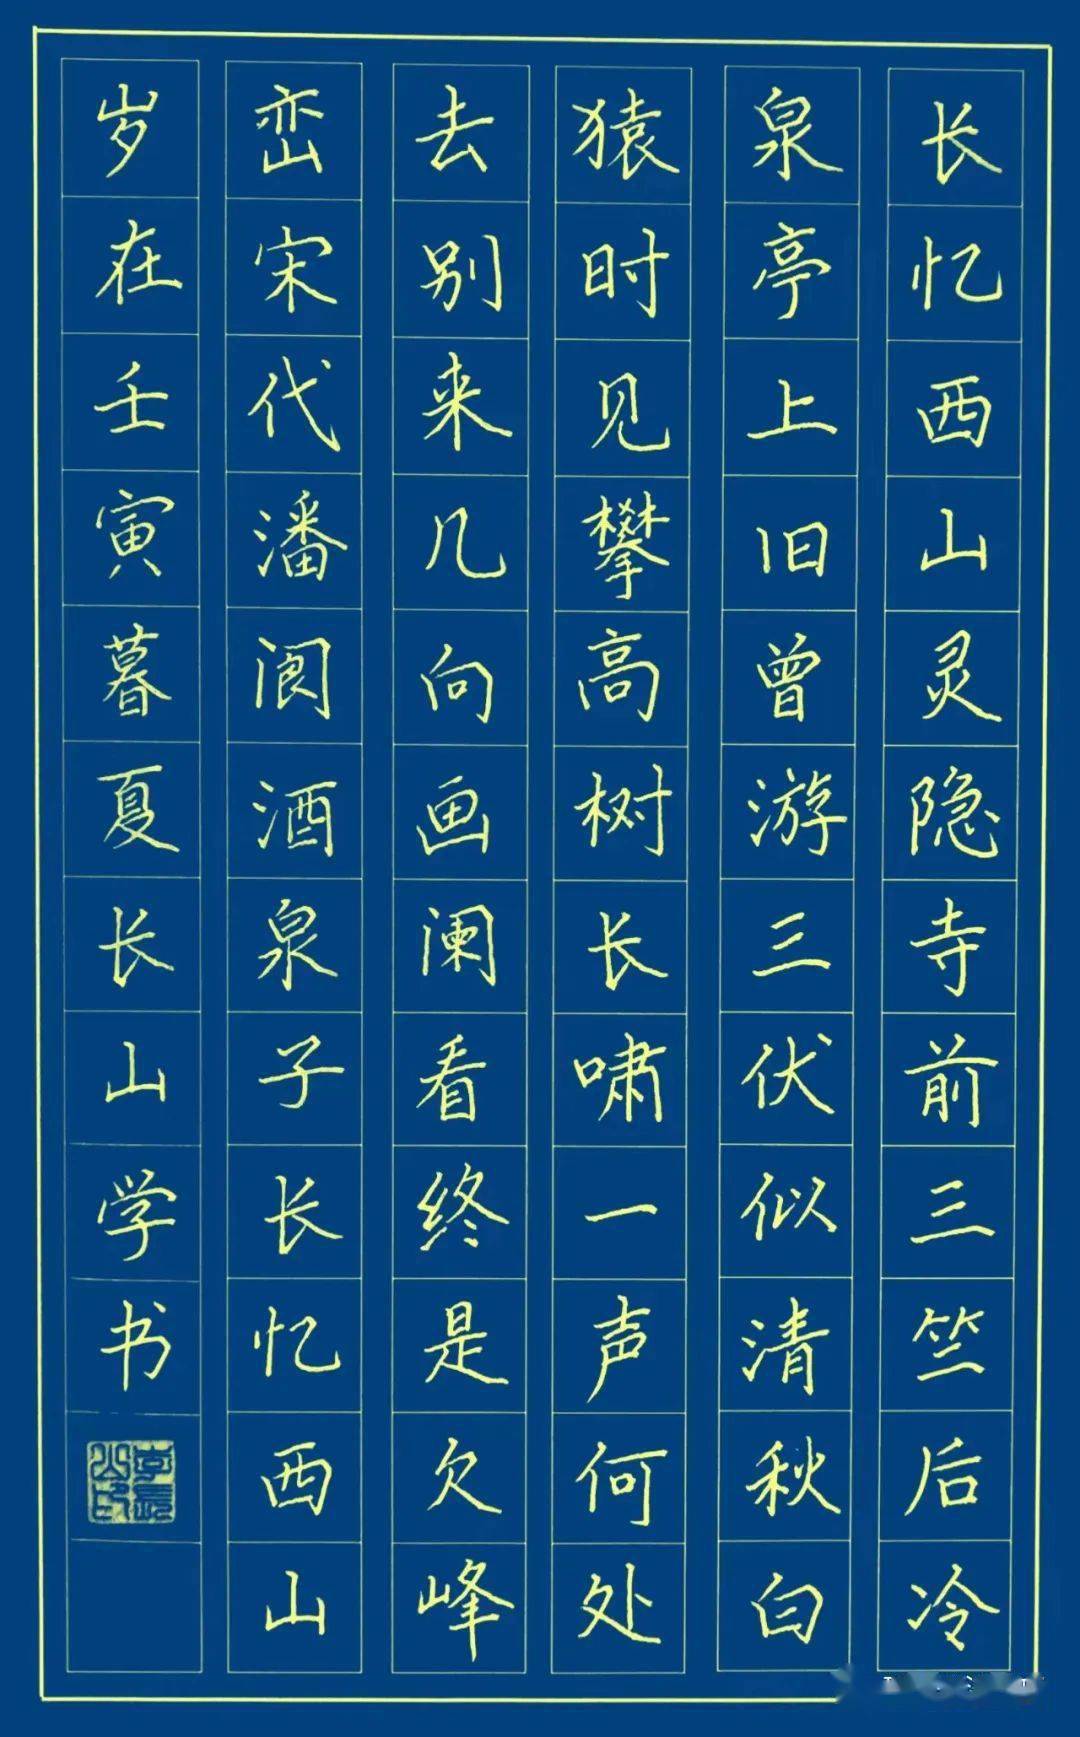 长忆西山灵隐寺前三竺后冷
泉亭上旧曾游三伏似清秋白
猿时见攀高树长啸一声何处
去别来几向画阑看终是欠峰
峦宋代潘阆酒泉子长忆西山
岁在壬寅暮夏长山学书